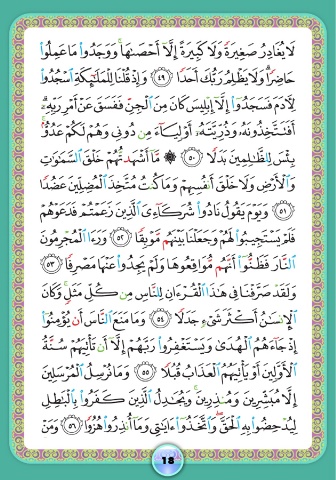 لَا يُغَادِرُ صَغِيرَةً وَلَا كَبِيرَةً إِلَّآ أَحْصَىٰهَا ۚ وَوَجَدُوا۟ مَا عَمِلُوا۟
حَاضِرًا ۗ وَلَا يَظْلِمُ رَبُّكَ أَحَدًا ﴿٤٩﴾ وَإِذْ قُلْنَا لِلْمَلَـٰٓئِكَةِ ٱسْجُدُوا۟
لِـَٔادَمَ فَسَجَدُوٓا۟ إِلَّآ إِبْلِيسَ كَانَ مِنَ ٱلْجِنِّ فَفَسَقَ عَنْ أَمْرِ رَبِّهِۦٓ ۗ
أَفَتَتَّخِذُونَهُۥ وَذُرِّيَّتَهُۥٓ أَوْلِيَآءَ مِن دُونِى وَهُمْ لَكُمْ عَدُوٌّۢ ۚ
بِئْسَ لِلظَّـٰلِمِينَ بَدَلًا ﴿٥٠﴾ ۞ مَّآ أَشْهَدتُّهُمْ خَلْقَ ٱلسَّمَـٰوَٰتِ
وَٱلْأَرْضِ وَلَا خَلْقَ أَنفُسِهِمْ وَمَا كُنتُ مُتَّخِذَ ٱلْمُضِلِّينَ عَضُدًا
﴿٥١﴾ وَيَوْمَ يَقُولُ نَادُوا۟ شُرَكَآءِىَ ٱلَّذِينَ زَعَمْتُمْ فَدَعَوْهُمْ
فَلَمْ يَسْتَجِيبُوا۟ لَهُمْ وَجَعَلْنَا بَيْنَهُم مَّوْبِقًا ﴿٥٢﴾ وَرَءَا ٱلْمُجْرِمُونَ
ٱلنَّارَ فَظَنُّوٓا۟ أَنَّهُم مُّوَاقِعُوهَا وَلَمْ يَجِدُوا۟ عَنْهَا مَصْرِفًا ﴿٥٣﴾
وَلَقَدْ صَرَّفْنَا فِى هَـٰذَا ٱلْقُرْءَانِ لِلنَّاسِ مِن كُلِّ مَثَلٍ ۚ وَكَانَ
ٱلْإِنسَـٰنُ أَكْثَرَ شَىْءٍ جَدَلًا ﴿٥٤﴾ وَمَا مَنَعَ ٱلنَّاسَ أَن يُؤْمِنُوٓا۟
إِذْ جَآءَهُمُ ٱلْهُدَىٰ وَيَسْتَغْفِرُوا۟ رَبَّهُمْ إِلَّآ أَن تَأْتِيَهُمْ سُنَّةُ
ٱلْأَوَّلِينَ أَوْ يَأْتِيَهُمُ ٱلْعَذَابُ قُبُلًا ﴿٥٥﴾ وَمَا نُرْسِلُ ٱلْمُرْسَلِينَ
إِلَّا مُبَشِّرِينَ وَمُنذِرِينَ ۚ وَيُجَـٰدِلُ ٱلَّذِينَ كَفَرُوا۟ بِٱلْبَـٰطِلِ
لِيُدْحِضُوا۟ بِهِ ٱلْحَقَّ ۖ وَٱتَّخَذُوٓا۟ ءَايَـٰتِى وَمَآ أُنذِرُوا۟ هُزُوًا ﴿٥٦﴾ وَمَنْ
18